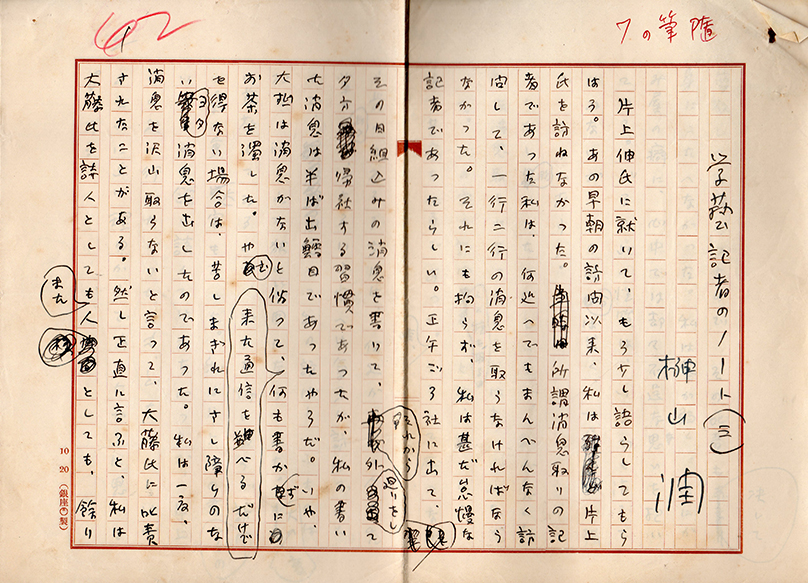 随筆の7
42
1
学芸記者のノート(三)
榊山潤
片上伸氏に就いて、もう少し語らしてもら
はう。あの早朝の訪問以来、私は片上
氏を訪ねなかつた。所謂消息取りの記
者であつた私は、何処つてもまんべんなく訪
問して、一行二行の消息を取らなければなら
なかつた。それにも拘らず、私は甚だ怠慢な
記者であつたらしい。正午ごろ社に出て、
その日組込みの消息を書いて、それから 廻りをして
夕方帰社する習慣であつたが、私の書い
た消息は半ば出鱈目であつたやうだ。いや、
大抵は消息がないと偽つて、何も書かずに
来た通信を並べるだけで
お茶を濁した。やむ
を得ない場合は、苦しまぎれにさし障りのな
いヨタ消息を出したのであつた。私は一度、
消息を沢山取らないと言つて、大藤氏に叱責
されたことがある。然し正直に言ふと、私は
大藤氏を詩人としてもまた人としても、余り
10 20 (銀座製)